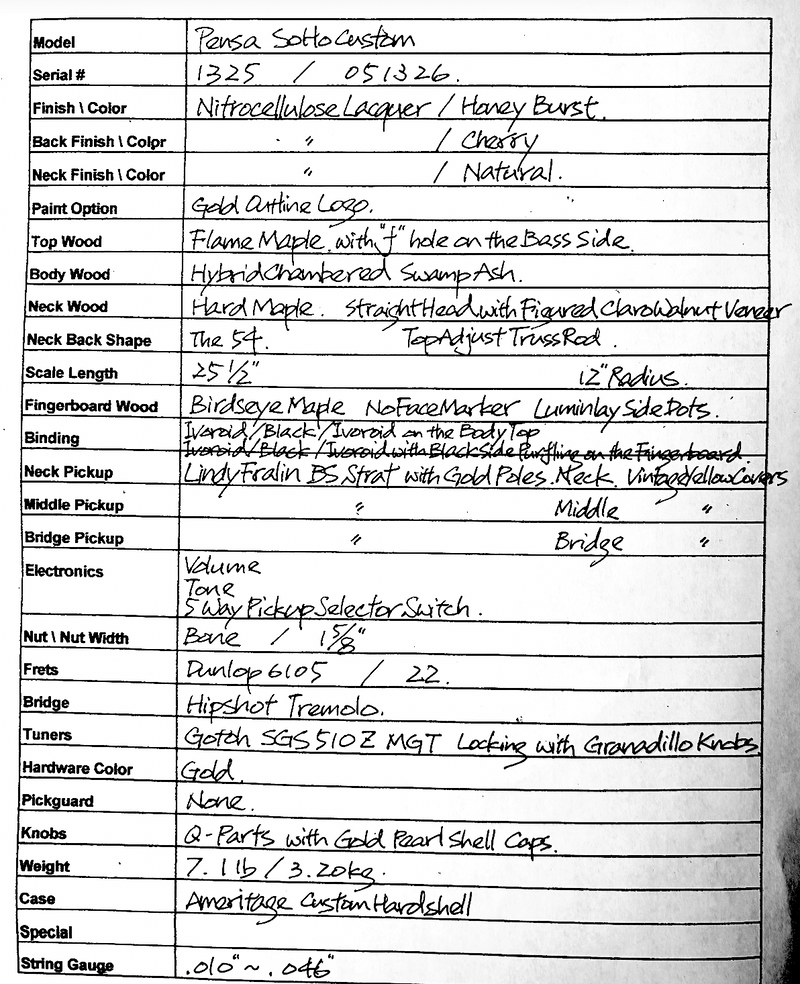 Model Pensa Sotto Custom
Serial # 1325 / 051326.
Finish \ Color Nitrocellulose Lacquer / Honey Burst.
Back Finish \ Color " / Cherry
Neck Finish \ Color " / Natural.
Paint Option Gold Outline Logo.
Top Wood Flame Maple with "f" hole on the Bass Side.
Body Wood Hybrid Chambered Swamp Ash.
Neck Wood Hard Maple. Straight Head with Figured Claro Walnut Veneer
Neck Back Shape The 54. Top Adjust Truss Rod.
Scale Length 25 1/2" 12" Radius.
Fingerboard Wood Birdseye Maple No Face Marker Luminlay Side Dots.
Binding Ivoroid / Black / Ivoroid on the Body Top
Ivoroid / Black / Ivoroid with Black Side Purfling on the Fingerboard.
Neck Pickup Lindy Fralin BS Strat with Gold Poles. Neck. Vintage Yellow Covers
Middle Pickup " Middle "
Bridge Pickup " Bridge "
Electronics Volume
Tone
5 Way Pickup Selector Switch.
Nut \ Nut Width Bone / 1 5/8"
Frets Dunlop 6105 / 22.
Bridge Hipshot Tremolo.
Tuners Gotoh SGS510Z MGT Locking with Granadillo Knobs.
Hardware Color Gold.
Pickguard None.
Knobs Q-Parts with Gold Pearl Shell Caps.
Weight 7.1 lb / 3.20kg.
Case Ameritage Custom Hardshell
Special
String Gauge .010" ~ .046"